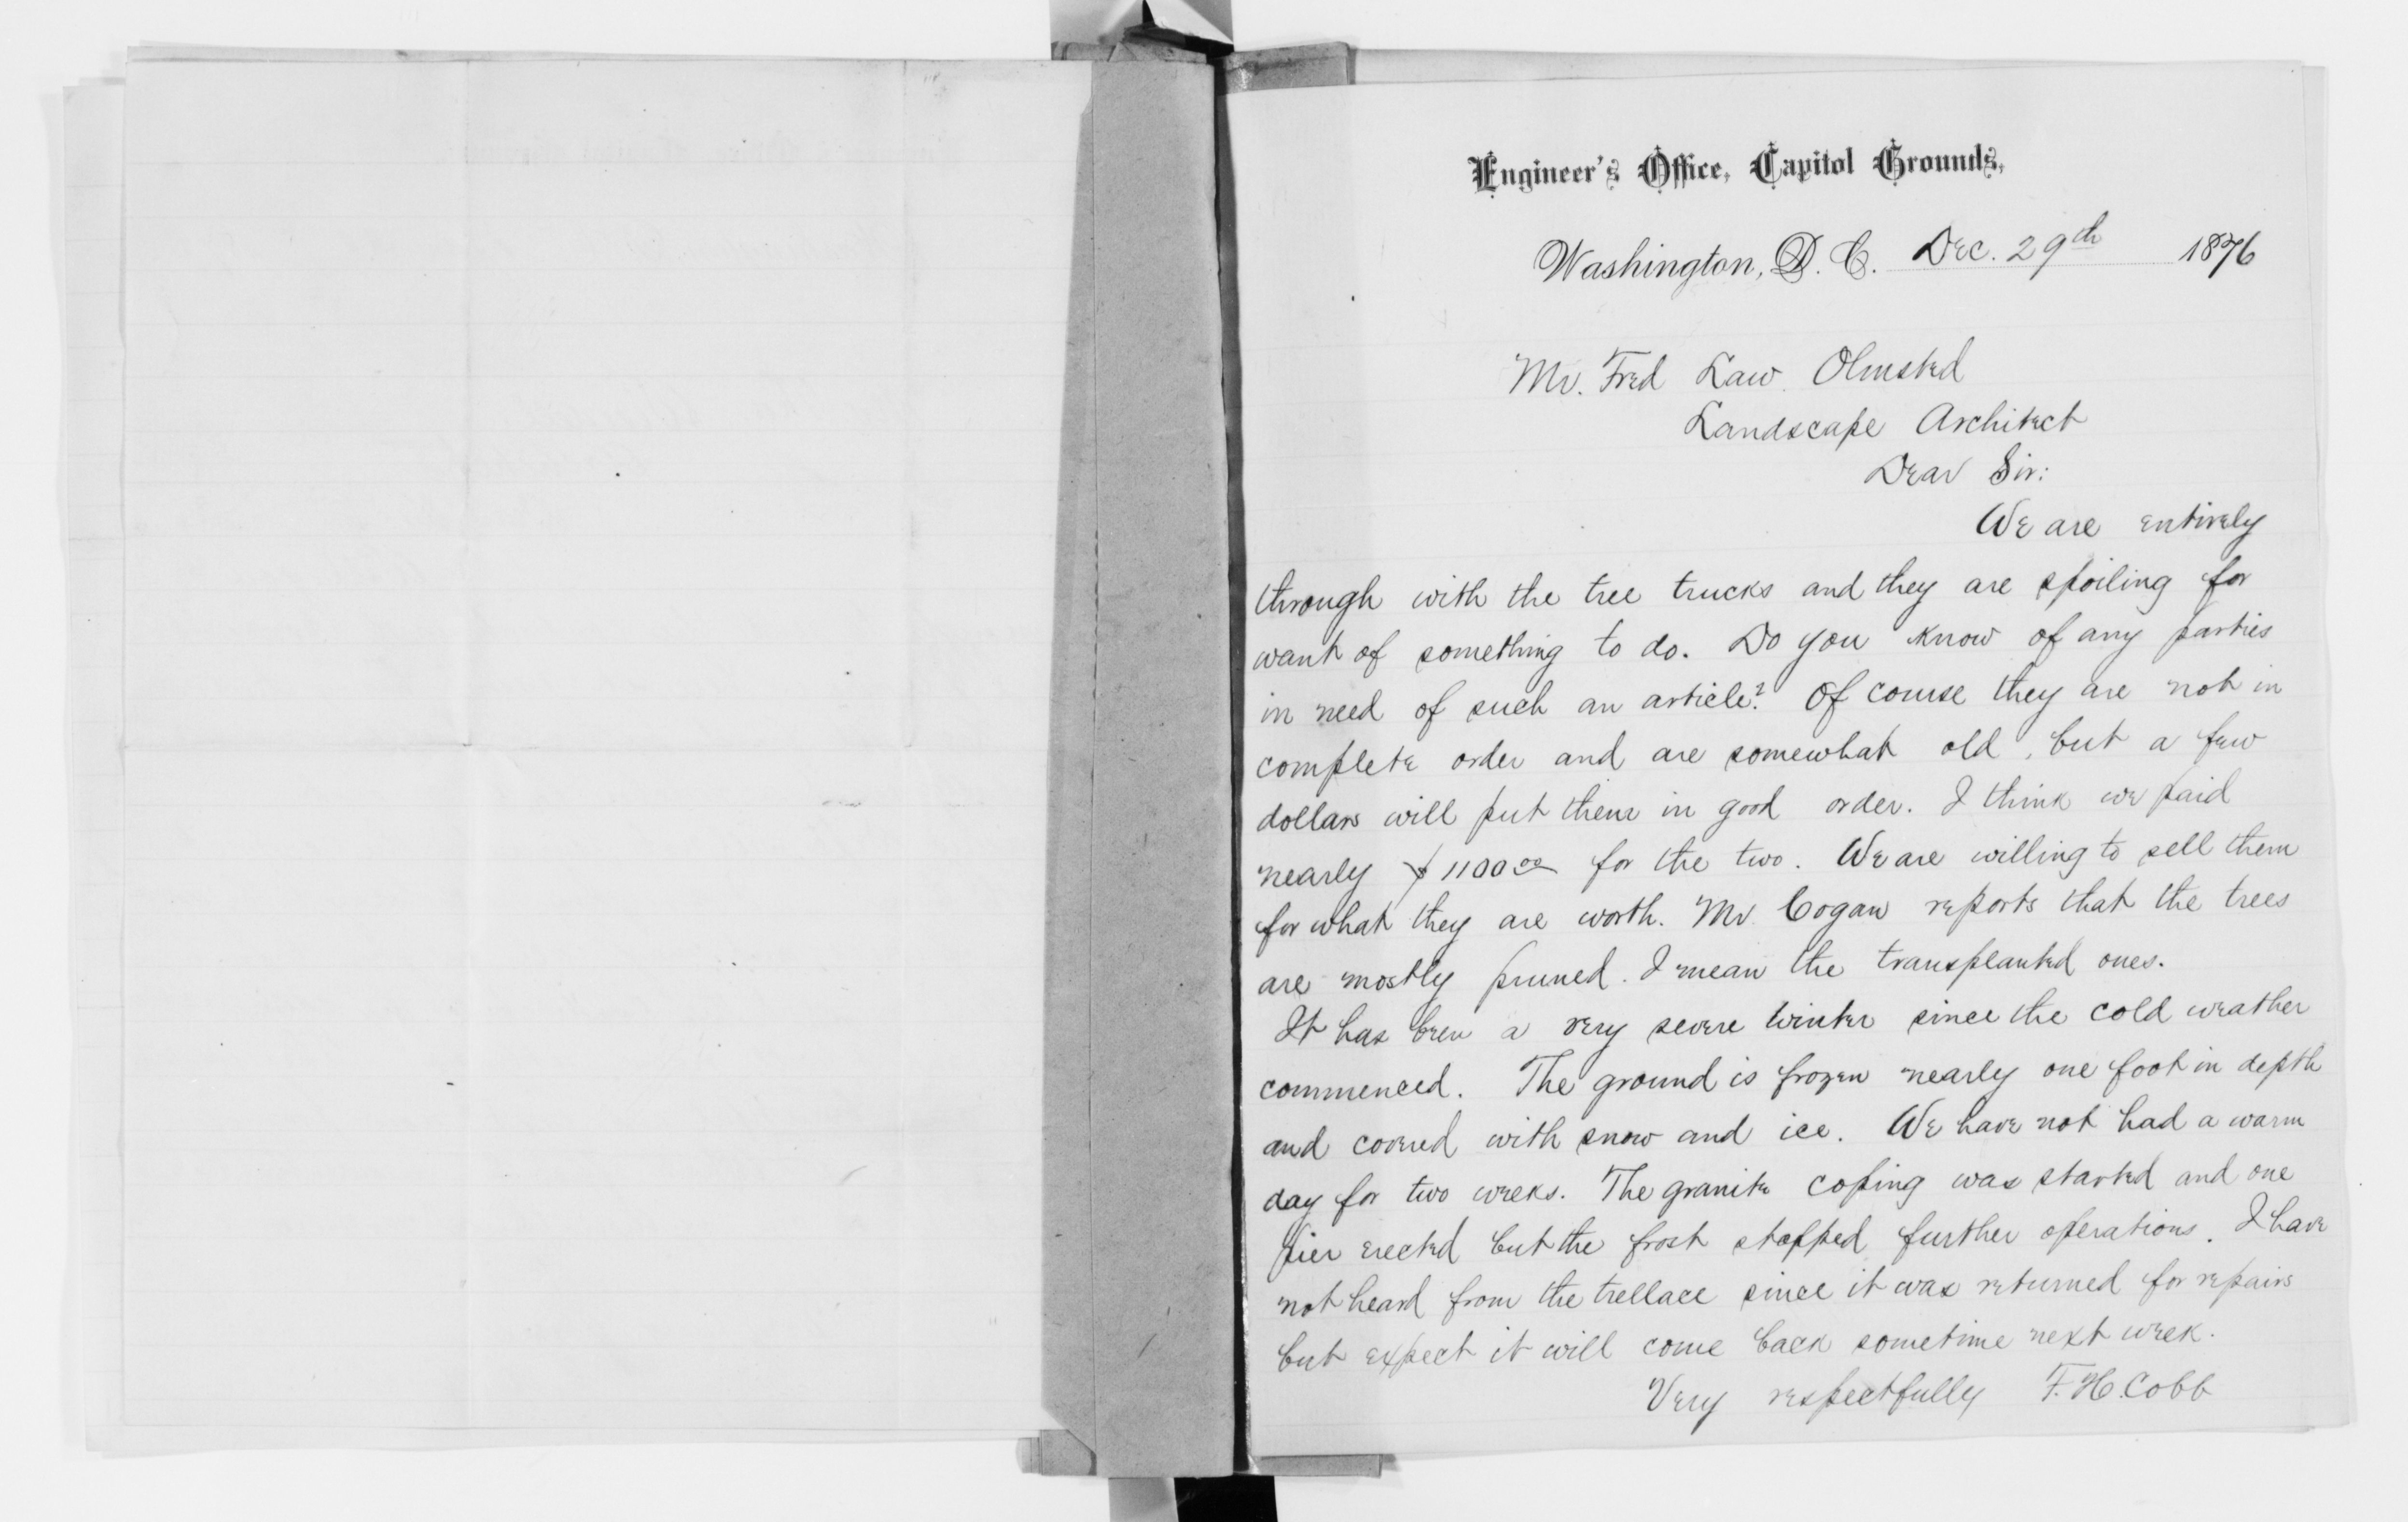 Engineer's Office, Capitol Grounds,
Washington, D. C. Dec. 29th 1876
Mr. Fred Law Olmsted
Landscape Architect
Dear Sir:
We are entirely
through with the tree trucks and they are spoiling for
want of something to do. Do you know of any parties
in need of such an article? Of course they are not in
complete order and are somewhat old, but a few
dollars will put them in good order. I think we paid
nearly $1100.00 for the two. We are willing to sell them
for what they are worth. Mr. Cogan reports that the trees
are mostly pruned. I mean the transplanted ones.
It has been a very severe winter since the cold weather
commenced. The ground is frozen nearly one foot in depth
and covered with snow and ice. We have not had a warm
day for two weeks. The granite coping was started and one
pier erected but the frost stopped further operations. I have
not heard from the trellace since it was returned for repairs
but expect it will come back sometime next week.
Very respectfully F. H. Cobb